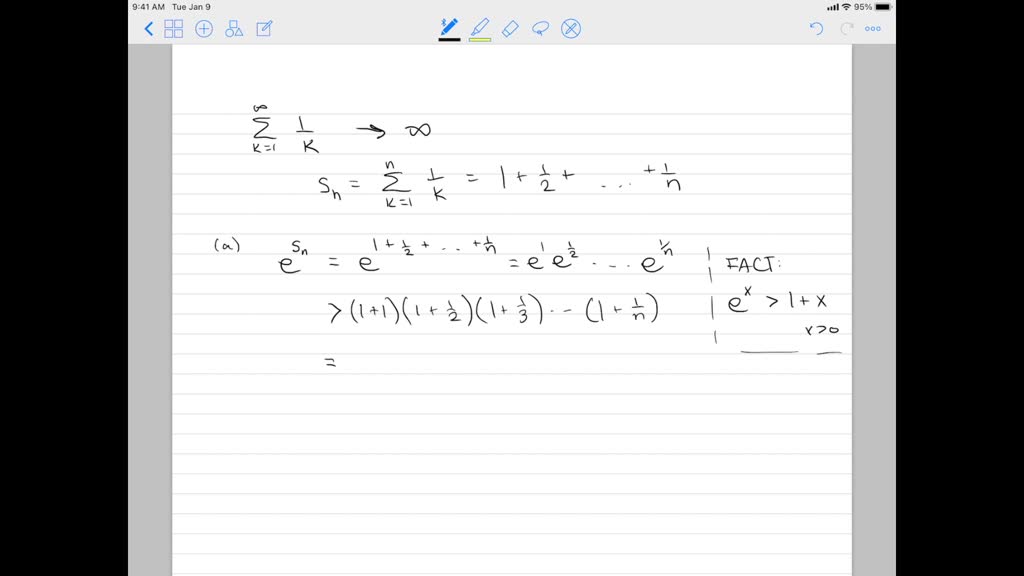 9:41 AM Tue Jan 9
95%
∞
∑ 1/K → ∞
K=1
Sn = n∑K=1 1/K = 1 + 1/2 + ... + 1/n
(a) e^Sn = e^(1 + 1/2 + ... + 1/n) = e^1 e^(1/2) ... e^(1/n)
> (1+1)(1+1/2)(1+1/3)...(1+1/n)
=
FACT:
e^x > 1+x
x>0